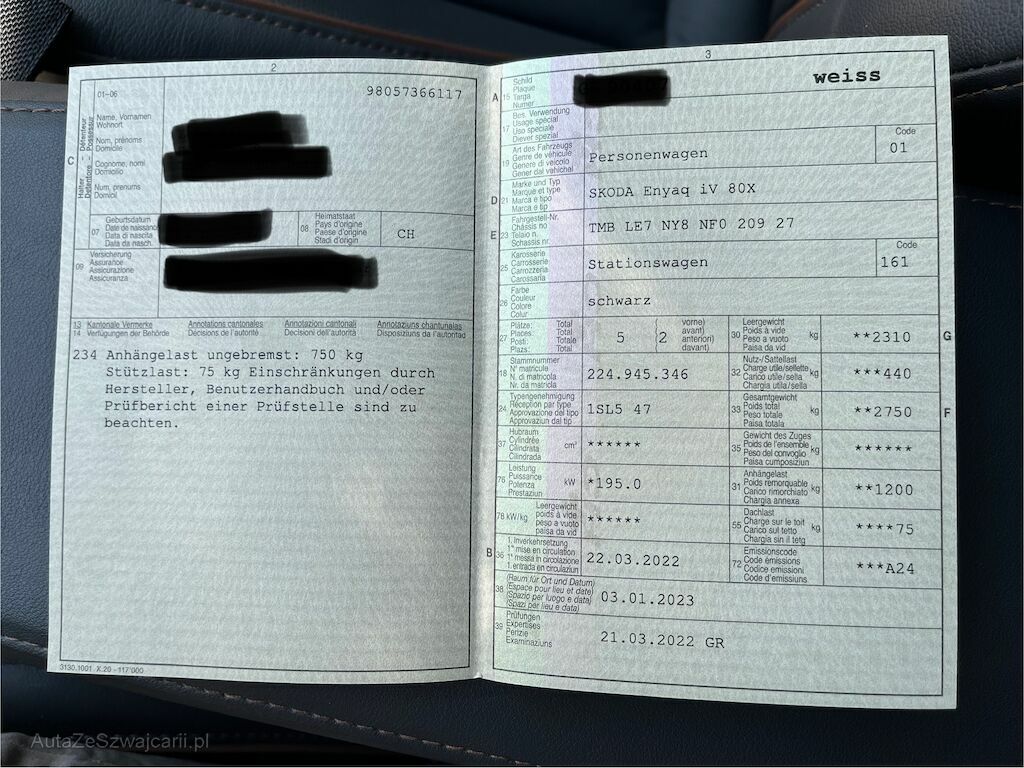 2
01-06
98057366117
Halter - Détenteur
Detentore - Possessur
C
Name, Vornamen
Wohnort
Nom, prénoms
Domicile
Cognome, nomi
Domicilio
Num, prenums
Domicil
07
Geburtsdatum
Date de naissance
Data di nascita
Data da nasch.
08
Heimatstaat
Pays d'origine
Paese d'origine
Stadi d'origin
CH
09
Versicherung
Assurance
Assicurazione
Assicuranza
13 Kantonale Vermerke
14 Verfügungen der Behörde
Annotations cantonales
Décisions de l'autorité
Annotazioni cantonali
Decisioni dell'autorità
Annotaziuns chantunalas
Disposiziuns da l'autoritad
234 Anhängelast ungebremst: 750 kg
Stützlast: 75 kg Einschränkungen durch
Hersteller, Benutzerhandbuch und/oder
Prüfbericht einer Prüfstelle sind zu
beachten.
3130.1001 X.20 - 117'000
3
A 15
Schild
Plaque
Targa
Numer
weiss
17
Bes. Verwendung
Usage spécial
Uso speciale
Diever spezial
19
Art des Fahrzeugs
Genre de véhicule
Genere di veicolo
Gener dal vehichel
Personenwagen
Code
01
D 21
Marke und Typ
Marque et type
Marca e tipo
Marca e tip
SKODA Enyaq iV 80X
E 23
Fahrgestell-Nr.
Châssis no
Telaio n.
Schassis nr.
TMB LE7 NY8 NF0 209 27
25
Karosserie
Carrosserie
Carrozzeria
Carossaria
Stationswagen
Code
161
26
Farbe
Couleur
Colore
Colur
schwarz
27
Plätze: Total
Places: Total
Posti: Totale
Plazs: Total
5
(2
vorne)
avant)
anteriori)
davant)
30
Leergewicht
Poids à vide
Peso a vuoto
Paisa da vid
kg
**2310
G
18
Stammnummer
N° matricule
N. di matricola
Nr. da matricla
224.945.346
32
Nutz-/Sattellast
Charge utile/sellette
Carico utile/sella
Chargia utila/sella
kg
***440
24
Typengenehmigung
Réception par type
Approvazione del tipo
Approvaziun dal tip
1SL5 47
33
Gesamtgewicht
Poids total
Peso totale
Paisa totala
kg
**2750
F
37
Hubraum
Cylindrée
Cilindrata
Cilindrada
cm³
******
35
Gewicht des Zuges
Poids de l'ensemble
Peso del convoglio
Paisa cumposiziun
kg
******
76
Leistung
Puissance
Potenza
Prestaziun
kW
*195.0
31
Anhängelast
Poids remorquable
Carico rimorchiato
Chargia annexa
kg
**1200
78 kW/kg
Leergewicht
poids à vide
peso a vuoto
paisa da vid
******
55
Dachlast
Charge sur le toit
Carico sul tetto
Chargia sin il tetg
kg
****75
B 36
1. Inverkehrsetzung
1re mise en circulation
1a messa in circolazione
1. entrada en circulaziun
22.03.2022
72
Emissionscode
Code émissions
Codice emissioni
Code d'emissiuns
***A24
38
(Raum für Ort und Datum)
(Espace pour lieu et date)
(Spazio per luogo e data)
(Spazi per lieu e data)
03.01.2023
39
Prüfungen
Expertises
Perizie
Examinaziuns
21.03.2022 GR
AutaZeSzwajcarii.pl